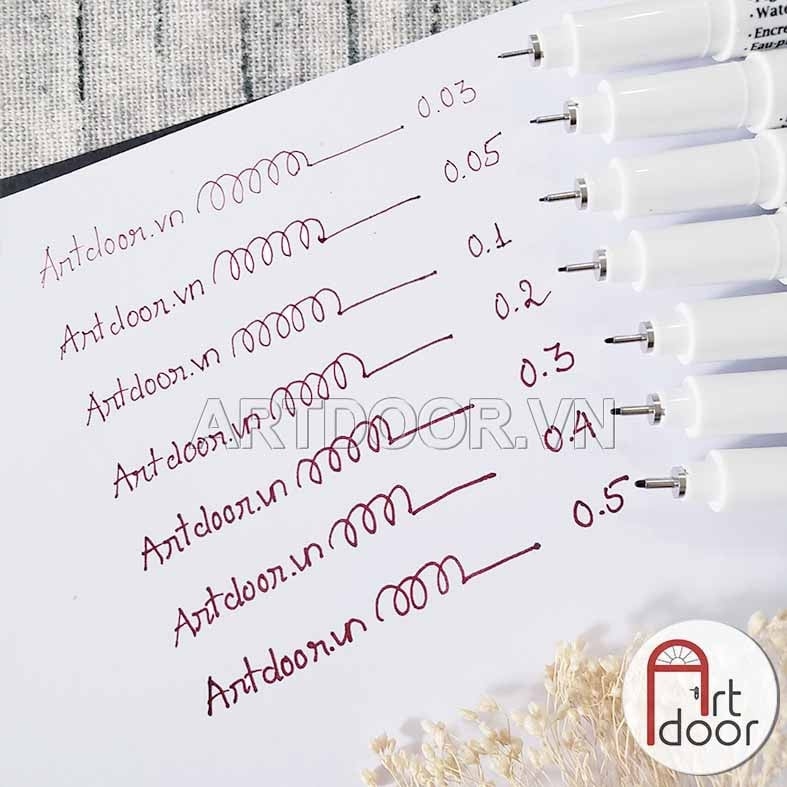 · Wate
· Encre
· Eau-p
Artdoor.vn 0.03
Artdoor.vn 0.05
Artdoor.vn 0.1
Artdoor.vn 0.2
Artdoor.vn 0.3
Artdoor.vn 0.4
Artdoor.vn 0.5
ARTDOOR.VN
Art
door